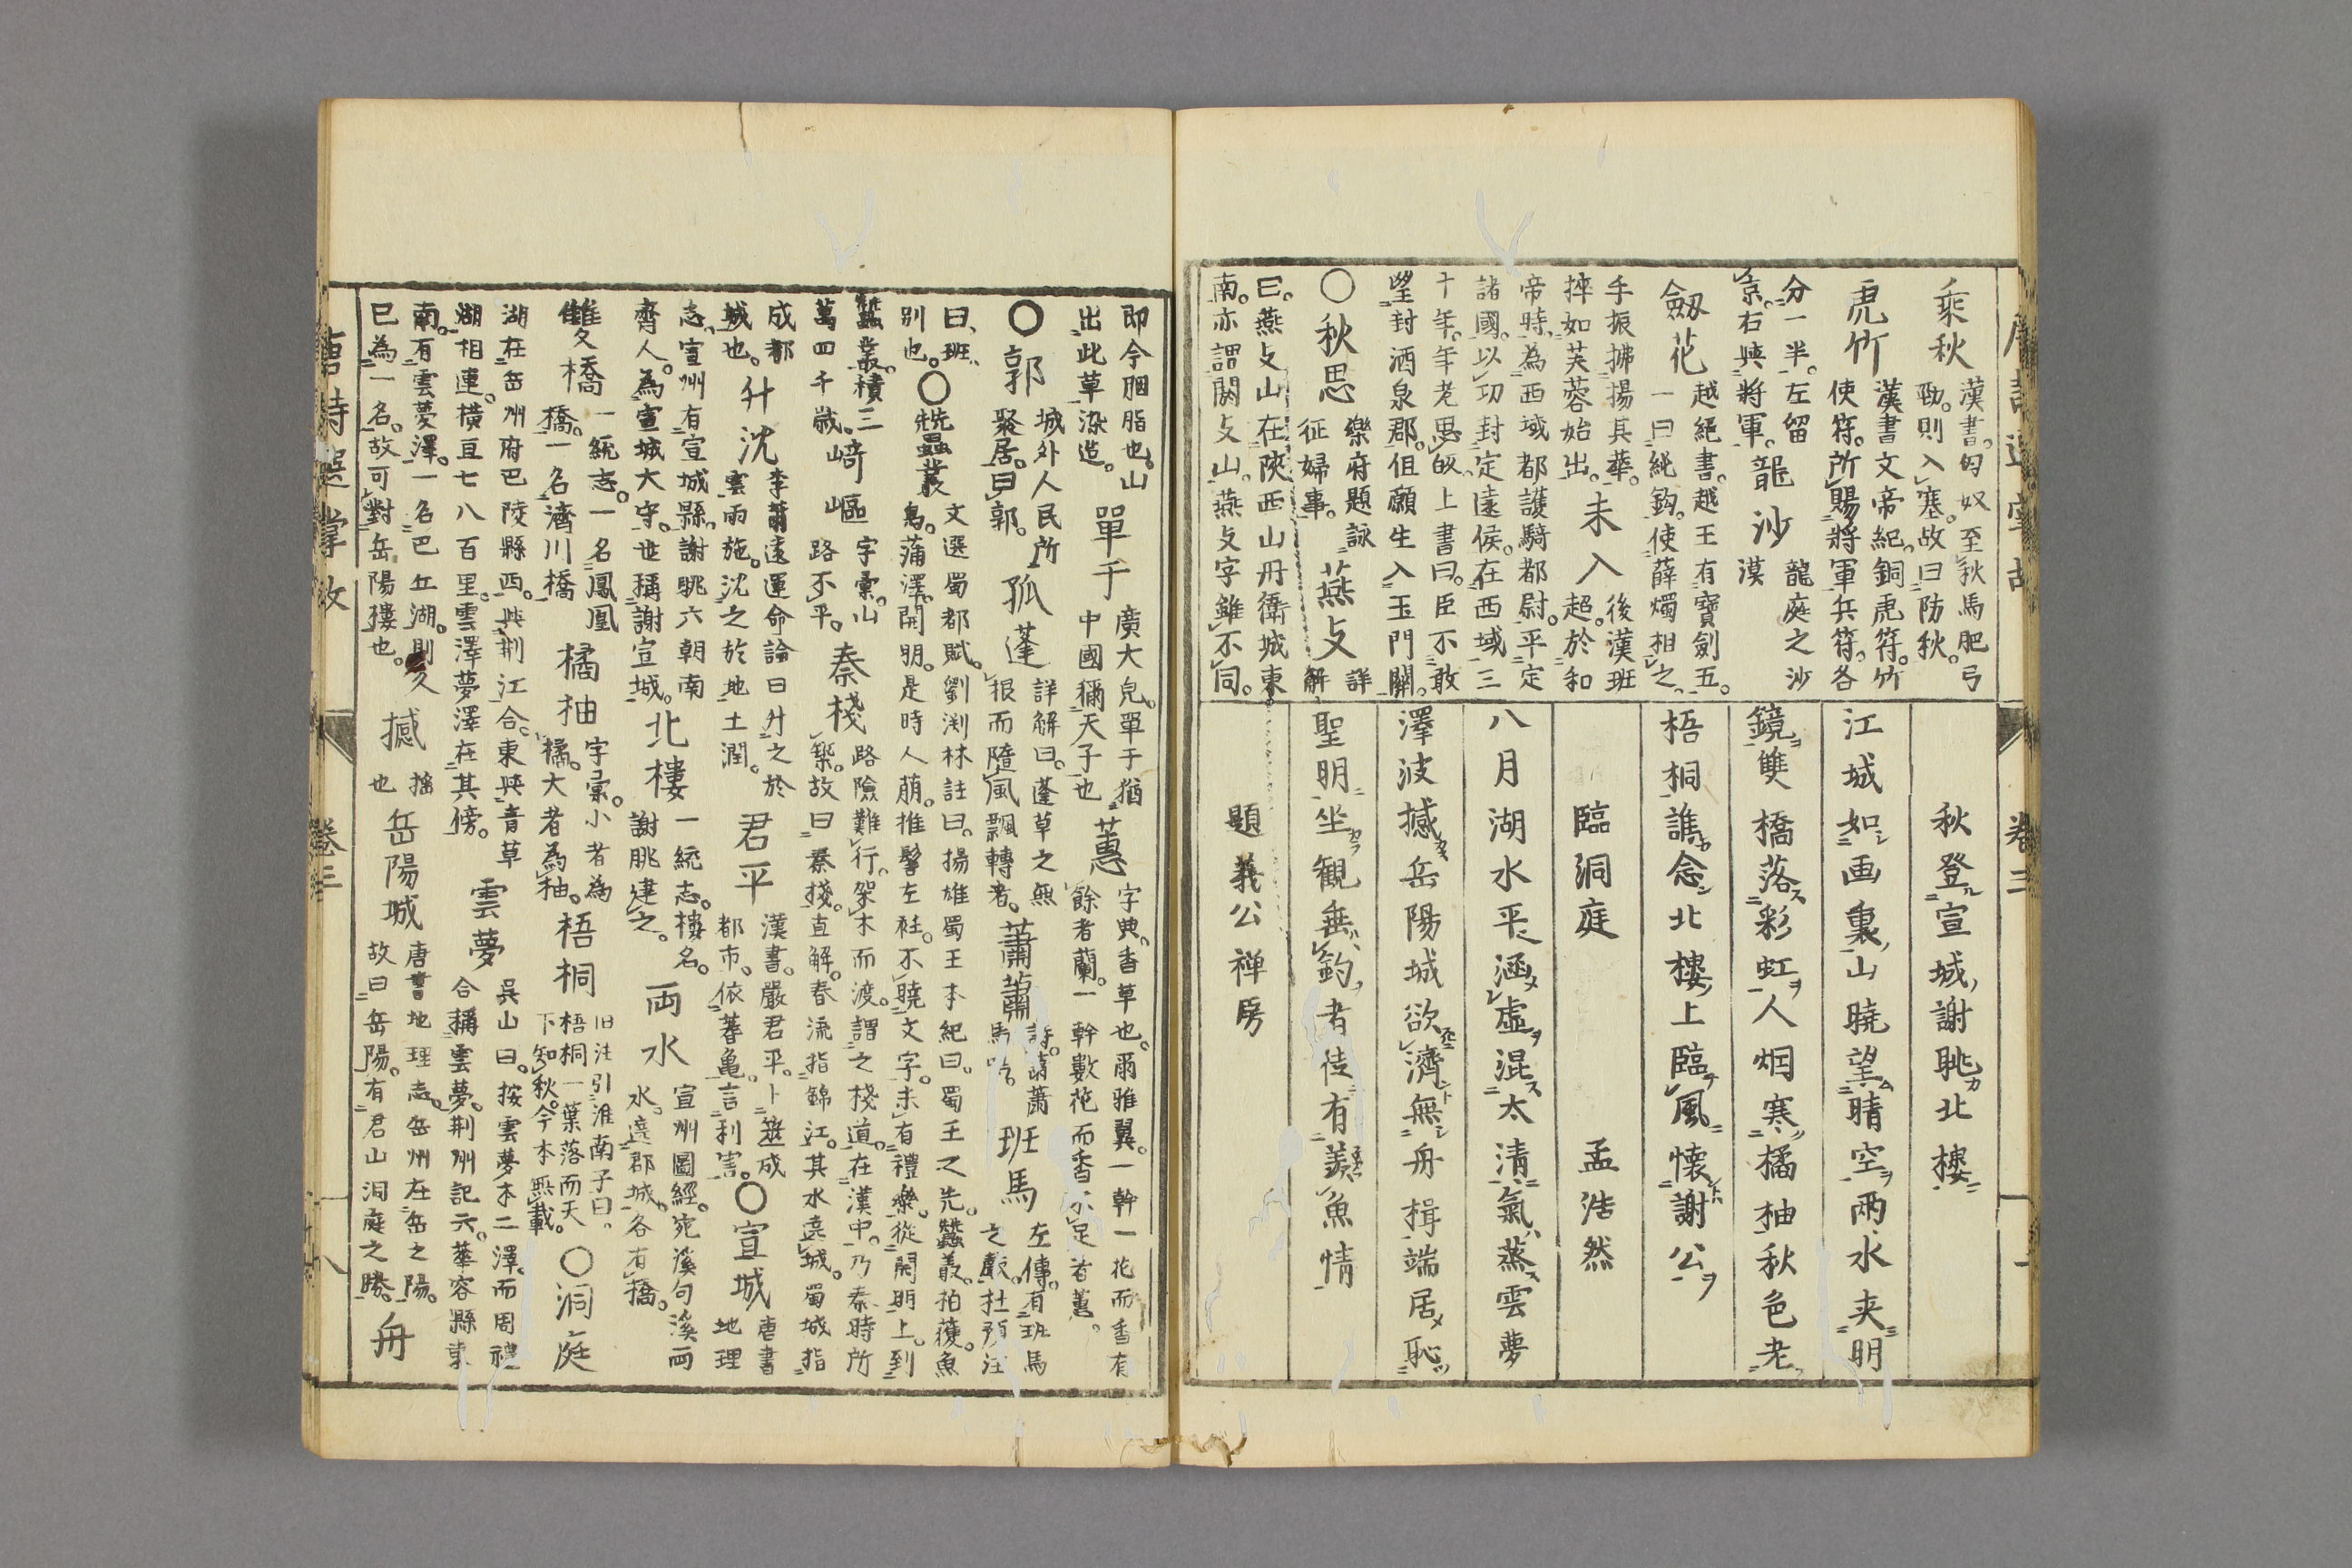 乘秋
漢書。匈奴至秋馬肥弓
勁。則入塞。故曰防秋。
虎竹
漢書文帝紀。銅虎符。竹
使符。所賜將軍兵符。各
分一半。左留
京。右與將軍。
龍沙
龍庭之沙
漠
劔花
越絶書。越王有寶劍五。
一曰純鈎。使薛燭相之。
手振拂揚其華。
捽如芙蓉始出。
未入
後漢班
超。於和
帝時。為西域都護騎都尉。平定
諸國。以功封定遠侯。在西域三
十年。年老思皈。上書曰。臣不敢
望封酒泉郡。但願生入玉門關。
〇秋思
樂府題詠
征婦事。
燕攴
詳
解
曰。燕攴山在陝西山丹衛城東
南。亦謂閼攴山。燕攴字雖不同。
秋登宣城謝眺北樓
江城如画裏山曉望晴空兩水夹明
鏡雙橋落彩虹人烟寒橘柚秋色老
梧桐誰念北樓上臨風懷謝公
臨洞庭 孟浩然
八月湖水平涵虛混太清氣蒸雲夢
澤波撼岳陽城欲濟無舟楫端居恥
聖明坐観垂釣者徒有羨魚情
題義公禅房
卷三
即今胭脂也。山
出此草。染造。
單于
廣大皃。單于猶
中國稱天子也
蕙
字典。香草也。爾雅翼。一幹一花而香有
餘者蘭。一幹數花而香不足者蕙。
〇郭
城外人民所
聚居。曰郭。
孤蓬
詳解曰。蓬草之無
根而隨風飄轉者。
蕭蕭
詩。蕭蕭
馬鳴。
班馬
左傳。有班馬
之聲。杜預注
曰。班、
別也。
〇蠶叢
文選蜀都賦。劉渕林註曰。揚雄蜀王本紀曰。蜀王之先。蠶叢。柏濩。魚
鳧。蒲澤。開明。是時人萠。推髻左衽。不曉文字。未有禮樂。從開明上。到
蠶叢。積三
萬四千歲。
﨑嶇
字彙。山
路不平。
秦棧
路險難行。架木而渡。謂之棧道。在漢中。乃秦時所
築。故曰秦棧。直解。春流指錦江。其水遶城。蜀城指
成都
城也。
升沈
李蕭遠運命論曰升之於
雲雨施。沈之於地土潤。
君平
漢書。嚴君平。卜筮成
都市。依蓍亀。言利害。
〇宣城
唐書
地理
志。宣州有宣城縣。謝眺六朝南
齊人。為宣城大守。世稱謝宣城。
北樓
一統志。樓名。
謝眺建之。
兩水
宣州圖經。宛溪句溪兩
水。遶郡城。各有橋。
雙橋
一統志。一名鳳凰
橋。一名濟川橋
橘柚
字彙。小者為
橘。大者為柚。
梧桐
旧注引淮南子曰。
梧桐一葉落而天
下知秋。今本無載。
〇洞庭
湖在岳州府巴陵縣西。與荆江合。東與青草
湖相連。橫亘七八百里。雲澤夢澤在其傍。
雲夢
吴山曰。按雲夢本二澤。而周禮
合稱雲夢。荆州記云。華容縣東
南。有雲夢澤。一名巴丘湖。則
已為一名。故可對岳陽樓也。
撼
揺
也
岳陽城
唐書地理志。岳州在岳之陽。
故曰岳陽。有君山洞庭之勝。
舟
唐詩選掌故
卷三
八